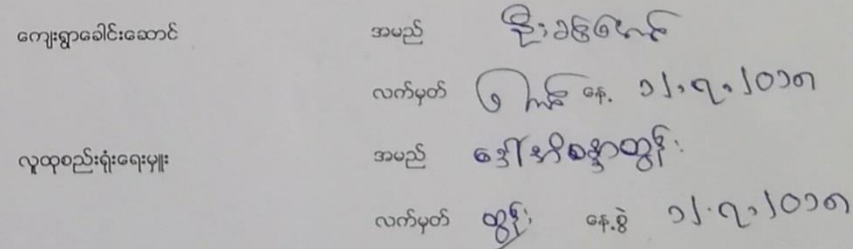 ကျေးရွာခေါင်းဆောင် အမည် ဦး
လက်မှတ် နေ့ ၁၂.၇.၂၀၁၈
လူထုစည်းရုံးရေးမှူး အမည် ဒေါ်အိစန္ဒာထွန်း
လက်မှတ် ထွန်း နေ့စွဲ ၁၂.၇.၂၀၁၈